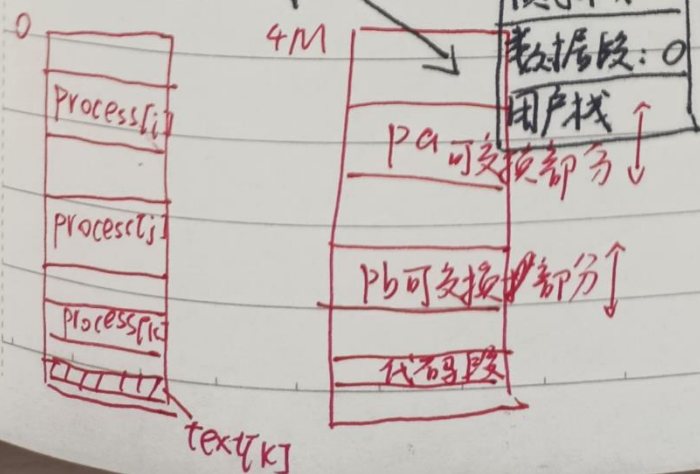 0
process[i]
process[j]
process[k]
text[k]
4M
pa可交换部分
pb可交换部分
代码段
数据段:0
用户栈